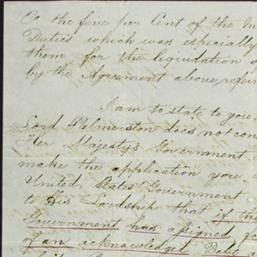 Or the five per Cent of the Im
Duties which was especially
them for the liquidation o
by the Agreement above refer
I am to state to you
Lord Palmerston does not con
Her Majesty's Government
make the application you
United States Government
to His Lordship that if the
Government has assigned fo
of an acknowledged Debt